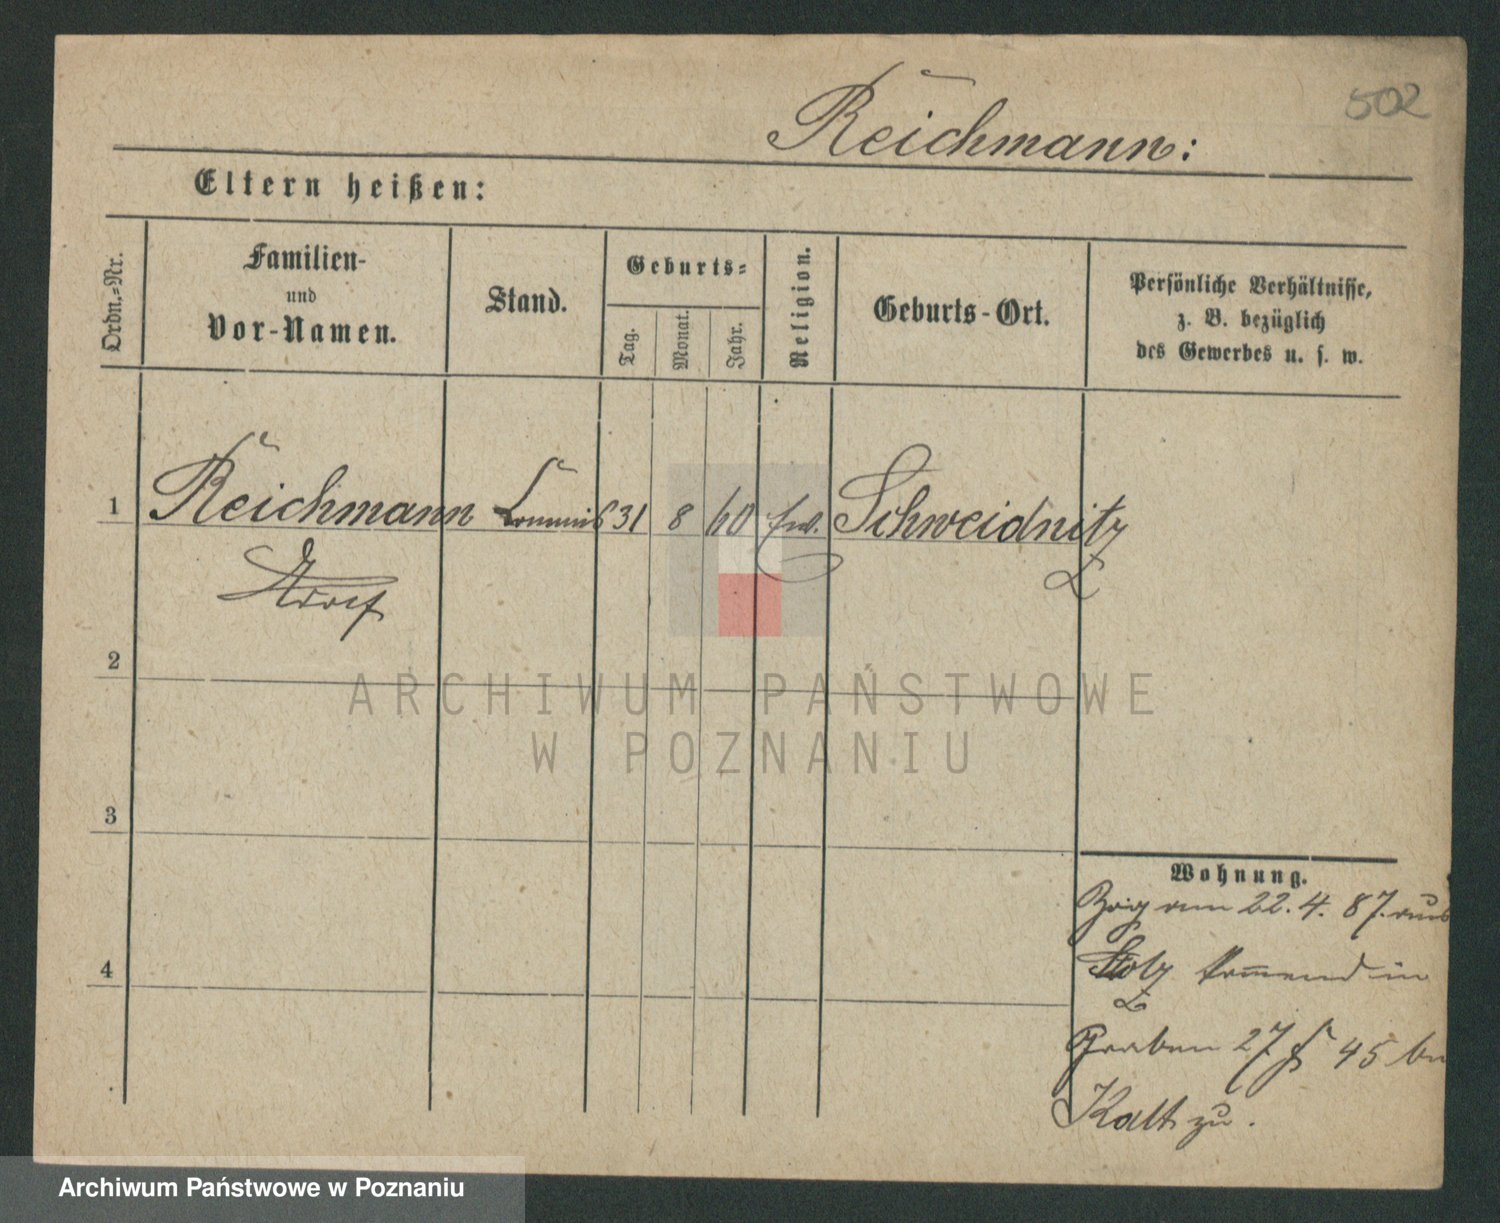 502
Reichmann:
Eltern heißen:
Ordn.=Nr.
Familien-
und
Vor-Namen.
Stand.
Geburts=
Tag.
Monat.
Jahr.
Religion.
Geburts-Ort.
Persönliche Verhältnisse,
z. B. bezüglich
des Gewerbes u. s. w.
1 Reichmann Commis 31 8 60 Schweidnitz
Adolf
2
3
4
Wohnung.
Zzg am 22. 4. 87. aus
kommend in
Graben 27 45 bei
Katt zu.
ARCHIWUM PAŃSTWOWE
W POZNANIU
Archiwum Państwowe w Poznaniu